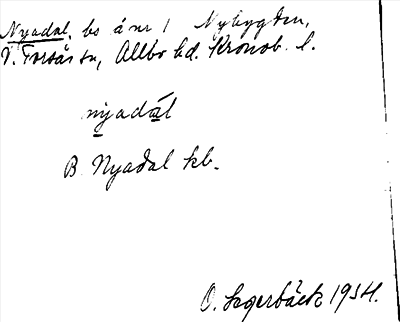 Nyadal, bs å nr 1 Nybygden,
V. Torsås sn, Allbo hd. Kronob. l.
nyadál
B Nyadal kb.
O. Segerbäck 1934.